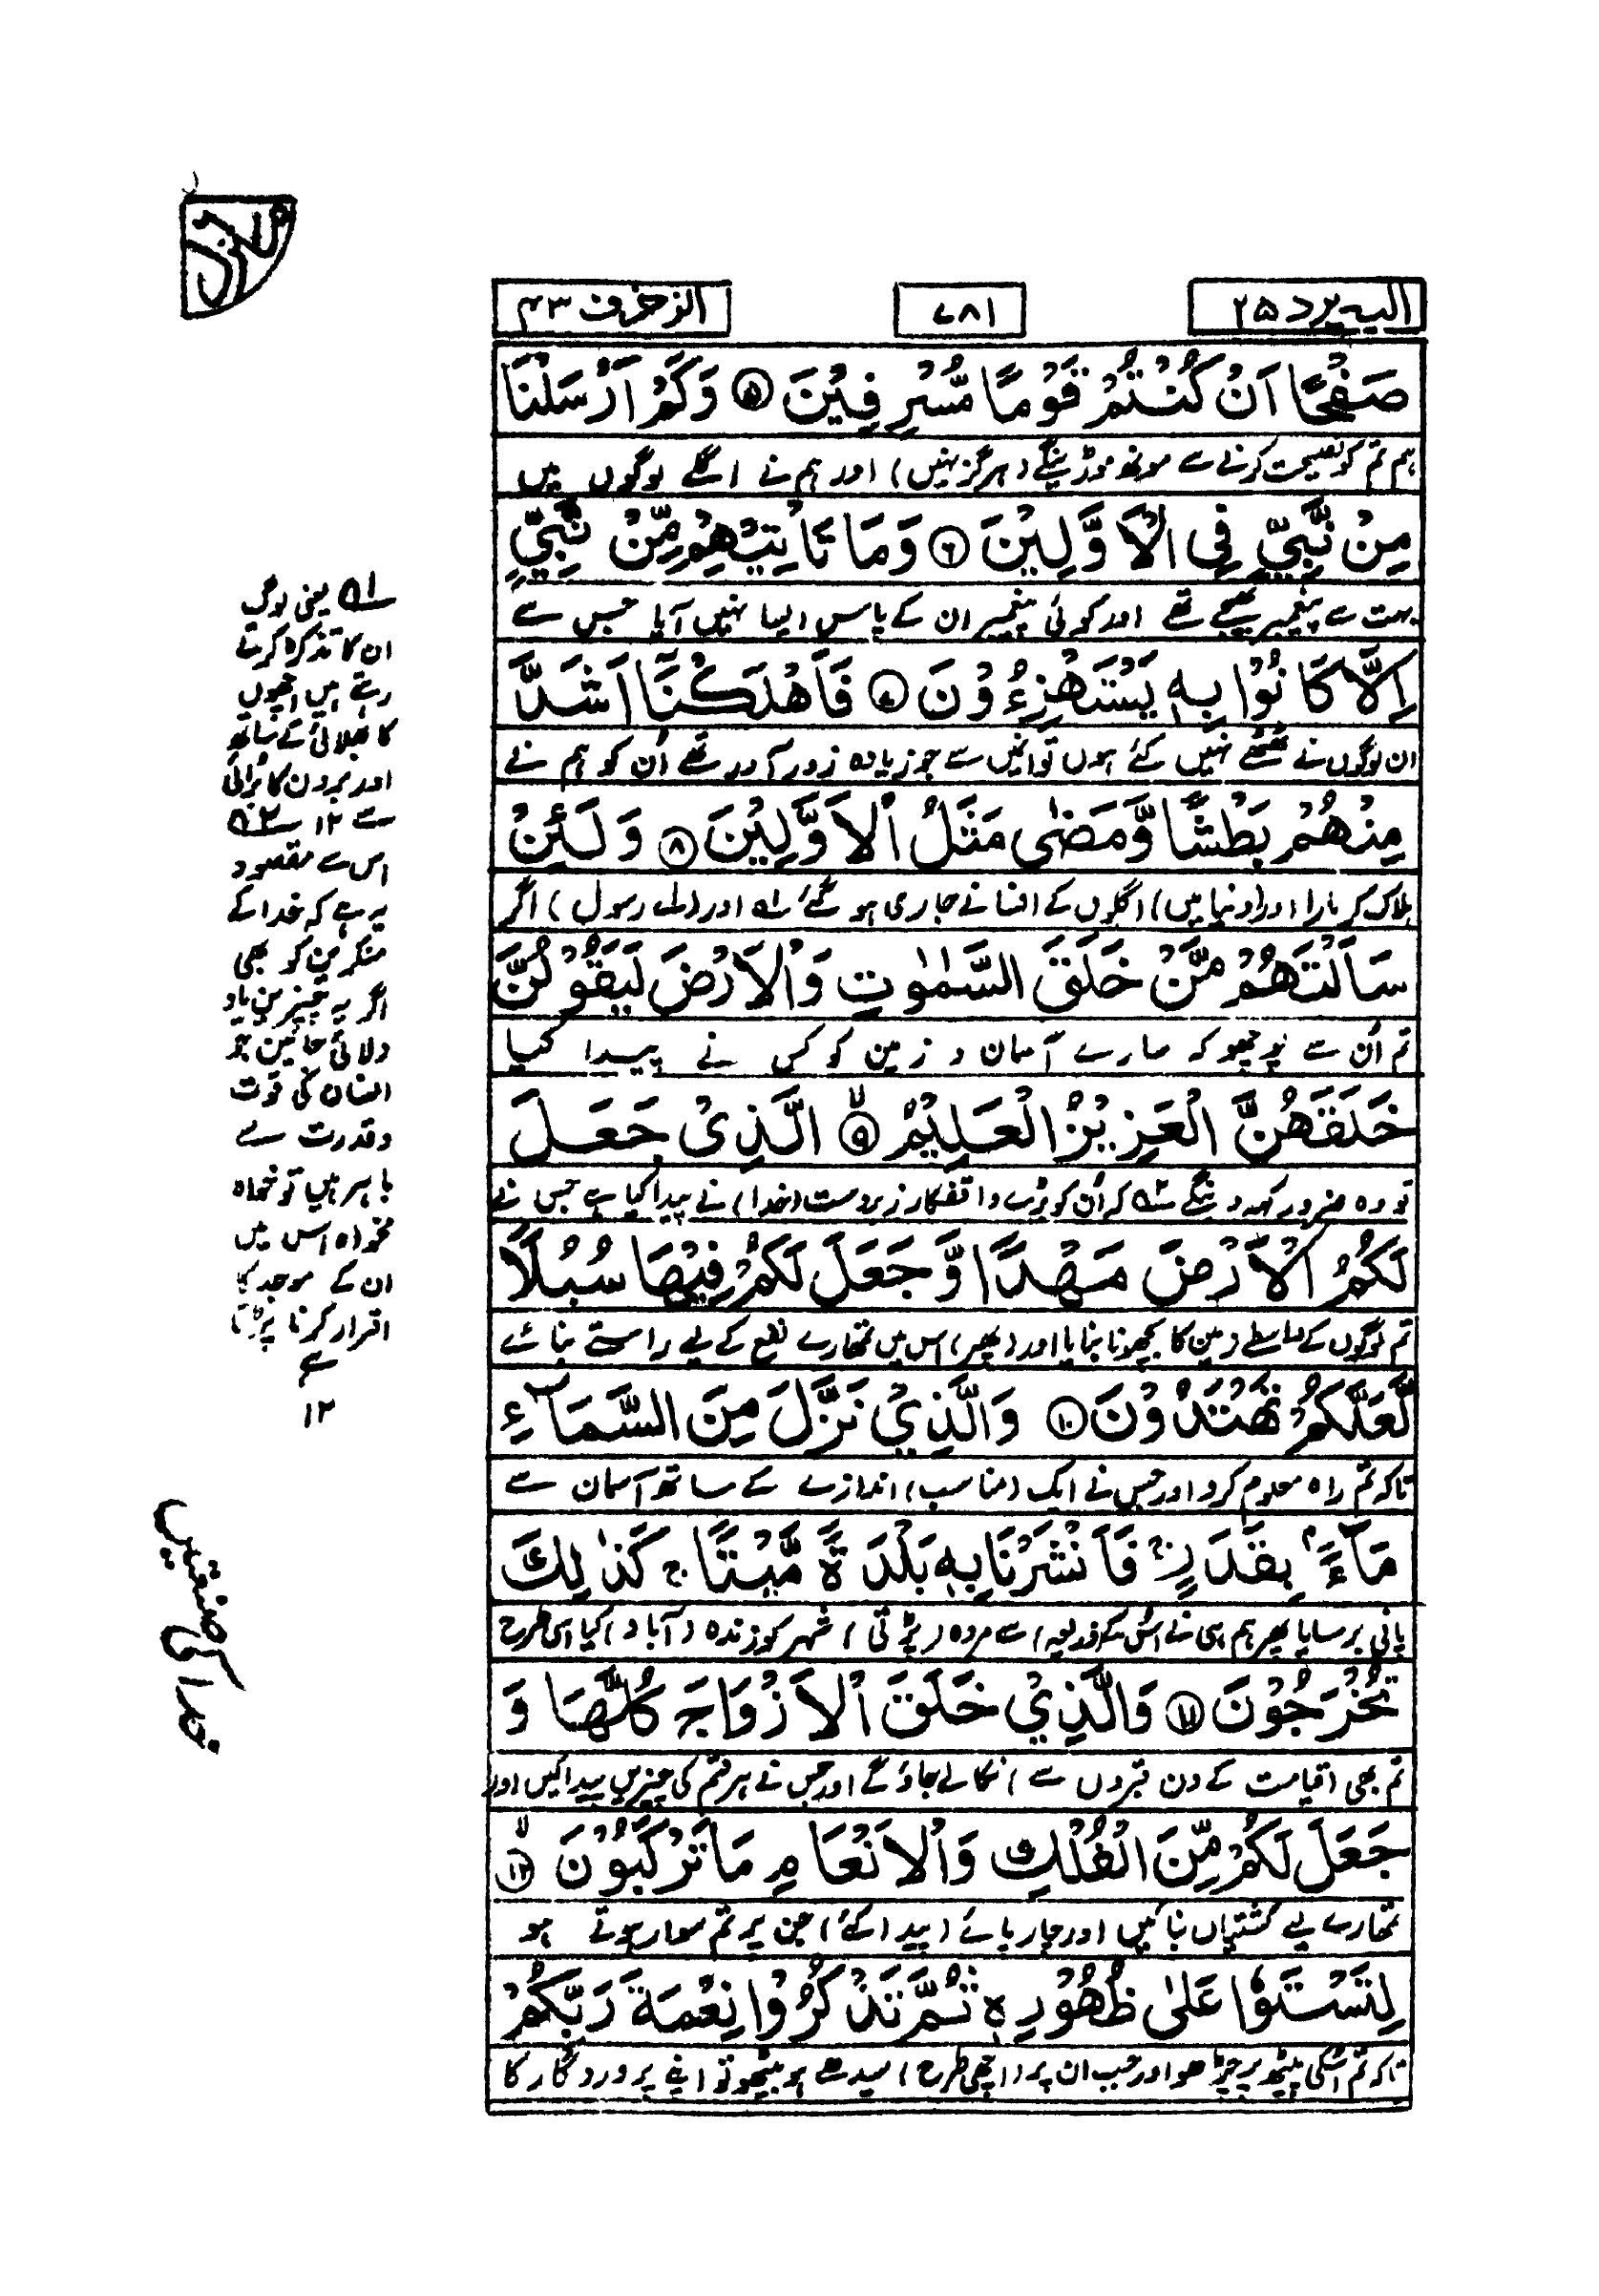 الیہ یرد ۲۵
۷۸۱
الزخرف ۴۳
صَفْحًا اَنْ كُنْتُمْ قَوْمًا مُّسْرِفِیْنَ ۵ وَكَمْ اَرْسَلْنَا
ہم تم کو نصیحت کرنے سے مونھ موڑ ینگے (ہرگز نہیں) اور ہم نے اگلے لوگوں میں
مِنْ نَّبِیٍّ فِی الْاَوَّلِیْنَ ۶ وَمَا یَاْتِیْهِمْ مِّنْ نَّبِیٍّ
بہت سے پیغمبر بھیجے تھے اور کوئی پیغمبر ان کے پاس ایسا نہیں آیا جس سے
اِلَّا كَانُوْا بِهٖ یَسْتَهْزِءُوْنَ ۷ فَاَهْلَكْنَا اَشَدَّ
ان لوگوں نے ٹھٹھے نہیں کئے ہوں تو انہیں سے جو زیادہ زور آور تھے اُن کو ہم نے
مِنْهُمْ بَطْشًا وَّمَضٰی مَثَلُ الْاَوَّلِیْنَ ۸ وَلَئِنْ
ہلاک کر مارا اور (دنیا میں) اگلوں کے افسانے جاری ہو گئے ۵۱ اور (اے رسول) اگر
سَاَلْتَهُمْ مَّنْ خَلَقَ السَّمٰوٰتِ وَالْاَرْضَ لَیَقُوْلُنَّ
تم اُن سے پوچھو کہ سارے آسمان و زمین کو کس نے پیدا کیا
خَلَقَهُنَّ الْعَزِیْزُ الْعَلِیْمُ ۹ الَّذِیْ جَعَلَ
تو وہ ضرور کہہ دینگے ۵۲ کہ اُن کو بڑے واقفکار زبردست (خدا) نے پیدا کیا ہے جس نے
لَكُمُ الْاَرْضَ مَهْدًا وَّجَعَلَ لَكُمْ فِیْهَا سُبُلًا
تم لوگوں کے واسطے زمین کا بچھونا بنایا اور (پھر) اس میں تمھارے نفع کے لیے راستے بنائے
لَّعَلَّكُمْ تَهْتَدُوْنَ ۱۰ وَالَّذِیْ نَزَّلَ مِنَ السَّمَآءِ
تاکہ تم راہ معلوم کرو اور جس نے ایک (مناسب) اندازے کے ساتھ آسمان سے
مَآءًۢ بِقَدَرٍ ۚ فَاَنْشَرْنَا بِهٖ بَلْدَةً مَّیْتًا ۚ كَذٰلِكَ
پانی برسایا پھر ہم ہی نے اس کے (ذریعہ) سے مردہ (پرتی) شہر کو زندہ (آباد) کیا اسی طرح
تُخْرَجُوْنَ ۱۱ وَالَّذِیْ خَلَقَ الْاَزْوَاجَ كُلَّهَا وَ
تم بھی (قیامت کے دن قبروں سے) نکالے جاؤ گے اور جس نے ہر قسم کی چیزیں پیدا کیں اور
جَعَلَ لَكُمْ مِّنَ الْفُلْكِ وَالْاَنْعَامِ مَا تَرْكَبُوْنَ ۱۲
تمھارے لیے کشتیاں بنائیں اور چار پائے (پیدا کئے) جن پر تم سوار ہوتے ہو
لِتَسْتَوٗا عَلٰی ظُهُوْرِهٖ ثُمَّ تَذْكُرُوْا نِعْمَةَ رَبِّكُمْ
تاکہ تم اسکی پیٹھ پر چڑھو اور جب ان پر (اچھی طرح) سیدھے ہو بیٹھو تو اپنے پروردگار کا
۵۱ یعنی لوگ
ان کا تذکرہ کرتے
رہتے ہیں اچھوں
کا بھلائی کے ساتھ
اور بروں کا برائی
سے ۱۲ ۵۲
اس سے مقصود
یہ ہے کہ خدا کے
منکرین کو بھی
اگر یہ چیزیں یاد
دلائی جائیں جو
انسان کی قوت
و قدرت سے
باہر ہیں تو خواہ
مخواہ اس میں
ان کے موجد کا
اقرار کرنا پڑتا
ہے
۱۲
خدا کی صنعتیں